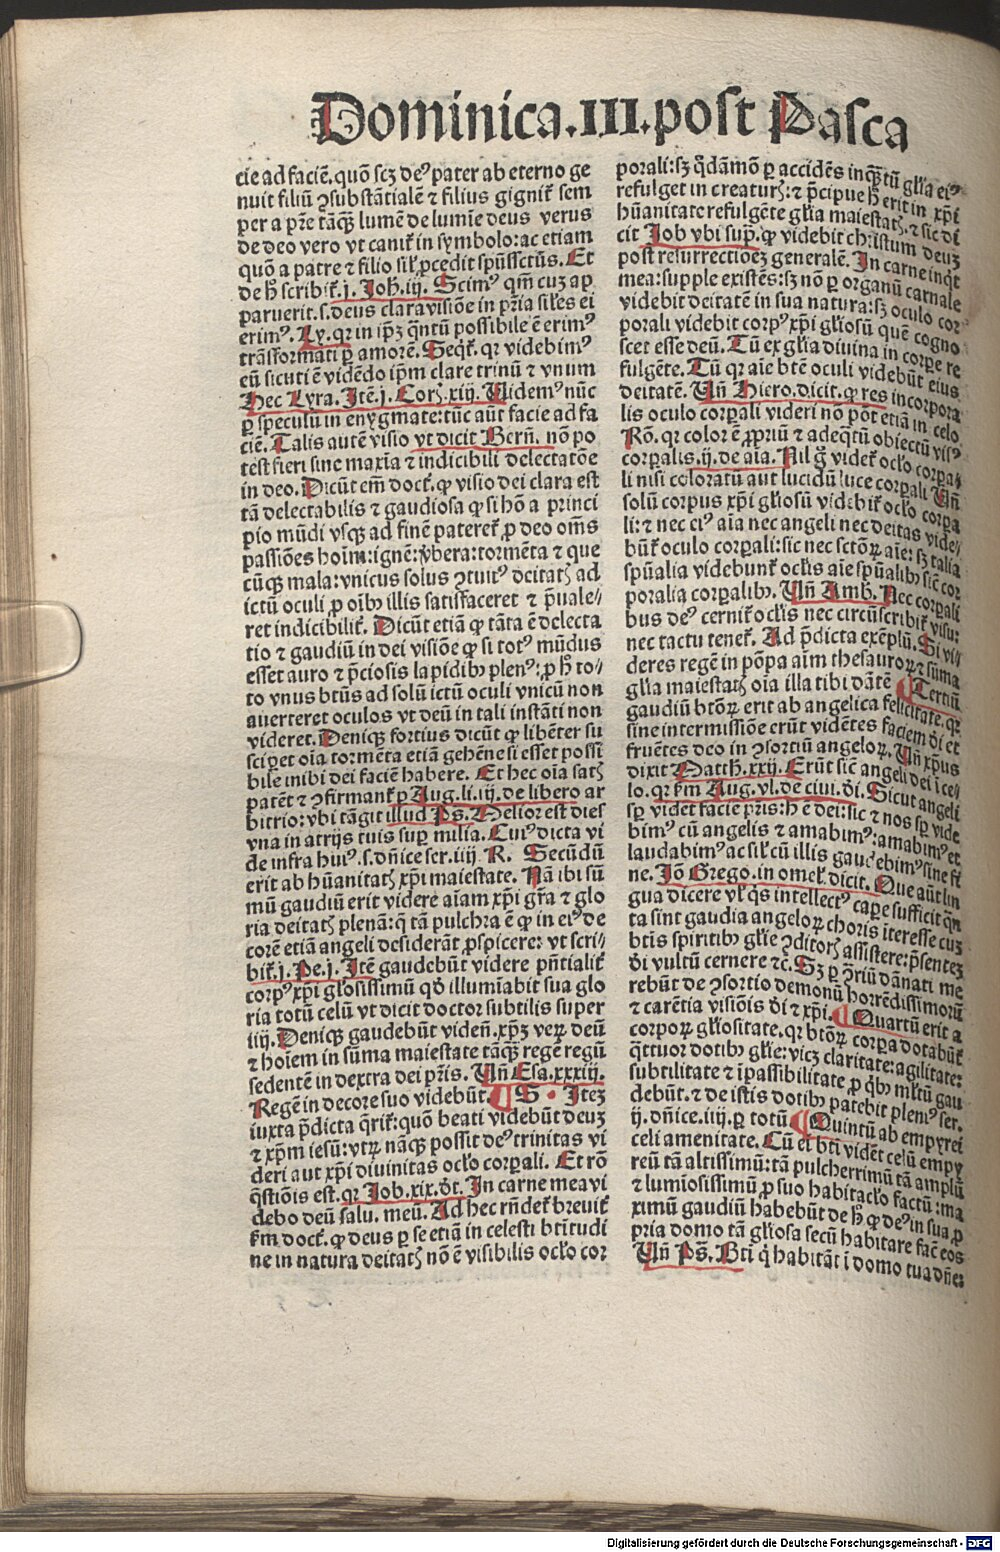 Dominica.III.post Pasca
cie ad faciē. quō scꝫ de⁹ pater ab eterno ge
nuit filiū ꝯsubstātialē ⁊ filius gignit̃ sem
per a pr̄e tāq̄ȝ lumē de lumīe deus verus
de deo vero vt canit̃ in symbolo: ac etiam
quō a patre ⁊ filio sil̓ ꝓcedit spūssctūs. Et
de h̄ scribit̃.j. Joh̄.iij. Scim⁹ qm̄ cuꝫ ap
paruerit.s.deus clara visiōe in pr̄ia sil̓es ei
erim⁹. Ly.qꝛ in ip̄ꝫ q̄ntū possibile ē erim⁹
trāsformati ꝑ amorē. Seq̄t̃. qꝛ videbim⁹
eū sicuti ē vidēdo ip̄m clare trinū ⁊ vnum
Hec Lyra. Itē.j. Corꝭ.xiij. Uidem⁹ nūc
ꝑ speculū in enygmate: tūc aūt facie ad fa
ciē. Talis autē visio vt dicit Bern̄. nō po
test fieri sine maxīa ⁊ indicibili delectatōe
in deo. Dicūt em̄ doct̃. ꝙ visio dei clara est
tā delectabilis ⁊ gaudiosa ꝙ si hō a princi
pio mūdi vsqꝫ ad finē pateret̃ ꝓ deo om̄s
passiōes hoīm: ignē: v̓bera: tormēta ⁊ que
cūqꝫ mala: vnicus solus ꝯtuit⁹ deitatꝭ ad
ictū oculi ꝓ oīb⁹ illis satisfaceret ⁊ p̄uale/
ret indicibilit̃. Dicūt etiā ꝙ tāta ē delecta
tio ⁊ gaudiū in dei visiōe ꝙ si tot⁹ mūdus
esset auro ⁊ p̄ciosis lapidib⁹ plen⁹: ꝓ h̄ to/
to vnus btūs ad solū ictū oculi vnicū non
auerteret oculos vt deū in tali instāti non
videret. Deniqꝫ fortius dicūt ꝙ libēter su
sciꝑet oīa tormēta etiā gehēne si esset possi
bile inibi dei faciē habere. Et hec oīa satꝭ
patēt ⁊ ꝯfirmant̃ ꝑ Aug.li.iij.de libero ar
bitrio: vbi tāgit illud Ps̄. Melior est dies
vna in atrijs tuis suꝑ milia. Cui⁹ dicta vi
de infra hui⁹.s.dn̄ice ser.iiij R. Secūdū
erit ab hūanitatꝭ xp̄i maiestate. Nā ibi sū
mū gaudiū erit videre aīam xp̄i gr̄a ⁊ glo
ria deitatꝭ plenā: q̄ tā pulchra ē ꝙ in ei⁹ de
corē etiā angeli desiderāt ꝓspicere: vt scri/
bit̃.j.Pe.j. Itē gaudebūt videre pn̄tialit̃
corp⁹ xp̄i gl̓osissimū qd̓ illumīabit sua glo
ria totū celū vt dicit doctor subtilis super
iiij. Deniqꝫ gaudebūt viden̄. xp̄ꝫ verꝫ deū
⁊ hoīem in sūma maiestate tāq̄ȝ regē regū
sedentē in dextra dei pr̄is. Un̄ Esa.xxxiij.
Regē in decore suo videbūt. ¶ S · Iteꝫ
iuxta p̄dicta q̄rit̃: quō beati videbūt deuꝫ
⁊ xp̄m iesū: vtꝝ nāqꝫ possit de⁹ trinitas vi
deri aut xp̄i diuinitas ocl̓o corꝑali. Et rō
q̄stiōis est. qꝛ Job.xix.dt̓. In carne mea vi
debo deū salu. meū. Ad hec rn̄det̃ breuit̃
ẜm doct̃. ꝙ deus ꝑ se etiā in celesti btītudi
ne in natura deitatꝭ nō ē visibilis ocl̓o cor
porali: sꝫ q̄dāmō ꝑ accidēs inq̄ȝtū gl̓ia ei⁹
refulget in creaturꝭ: ⁊ p̄cipue h̄ erit in xp̄i
hūanitate refulgēte gl̓ia maiestatꝭ. ⁊ sic di
cit Job vbi sup̄. ꝙ videbit christum deuꝫ
post resurrectiōeꝫ generalē. In carne inqt̓
mea: supple existēs: sꝫ nō ꝑ organū carnale
videbit deitatē in sua natura: sꝫ oculo cor
porali videbit corp⁹ xp̄i gl̓iosū quē cogno
scet esse deū. Tū ex gl̓ia diuina in corpe re
fulgēte. Tū qꝛ aīe btē oculi videbūt eius
deitatē. Un̄ Hiero.dicit. ꝙ res incorpora
lis oculo corꝑali videri nō pōt etiā in celo
Rō. qꝛ color ē ꝓpriū ⁊ adeq̄tū obiectū vis⁹
corꝑalis.ij.de aīa. Nil g̓ videt̃ ocl̓o corꝑa/
li nisi coloratū aut lucidū luce corꝑali Un̄
solū corpus xp̄i gl̓iosū videbit̃ ocl̓o corꝑa
li: ⁊ nec ei⁹ aīa nec angeli nec deitas vide/
būt̃ oculo corꝑali: sic nec sctōꝝ aīe: sꝫ talia
spūalia videbunt̃ ocl̓is aīe spūalib⁹ sic̄ cor
poralia corꝑalib⁹. Un̄ Amb. Nec corꝑali
bus de⁹ cernit̃ ocl̓is nec circūscribit̃ visu:
nec tactu tenet̃. Ad p̄dicta exēplū. Si vi/
deres regē in pōpa aīm thesauroꝝ ⁊ sūma
gl̓ia maiestatꝭ oīa illa tibi dātē ¶ Tertiū
gaudiū btōꝝ erit ab angelica felicitate. qꝛ
sine intermissiōe erūt vidētes faciem dī et
fruētes deo in ꝯsortiū angeloꝝ. Un̄ xp̄us
dixit Matth.xxij. Erūt sic̄ angeli dei ī ce/
lo. qꝛ ẜm Aug.vl.de ciui.dī. Sicut angeli
sꝑ videt facie pr̄is: h̄ ē dei: sic ⁊ nos sꝑ vide
bim⁹ cū angelis ⁊ amabim⁹: amabim⁹ et
laudabim⁹ ac sil̓ cū illis gaudebim⁹ sine fi
ne. Iō Grego.in omel̓.dicit. Que aūt lin
gua dicere vl̓ q̓s intellect⁹ caꝑe sufficit q̄n
ta sint gaudia angeloꝝ choris īteresse cuꝫ
btīs spiritib⁹ gl̓ie ꝯditorꝭ assistere: p̄senteꝫ
dī vultū cernere ⁊c. Sꝫ ꝑ ꝯriū dānati me
rebūt de ꝯsortio demonū horrēdissimorū
⁊ carētia visiōis dī ⁊ xp̄i. ¶ Quartū erit a
corporꝝ gl̓iositate. qꝛ btōꝝ corꝑa dotabūt̃
q̄ttuor dotib⁹ gl̓ie: vicꝫ claritate: agilitate:
subtilitate ⁊ īpassibilitate ꝓ q̓b⁹ ml̓tū gau
debūt. ⁊ de istis dotib⁹ patebit plen⁹ ser.
ij.dn̄ice.iiij.ꝑ totū ¶ Quintū ab empyrei
celi amenitate. Cū eī btī vidēt celū empy
reū tā altissimū: tā pulcherrimū tā amplū
⁊ lumīosissimū ꝓ suo habitacl̓o factū: ma
ximū gaudiū habebūt de h̄ ꝙ de⁹ in sua ꝓ
pria domo tā gl̓iosa secū habitare fac̄ eos
Un̄ Ps̄. Btī q̓ habitāt ī domo tua dn̄e:
Digitalisierung gefördert durch die Deutsche Forschungsgemeinschaft - DFG